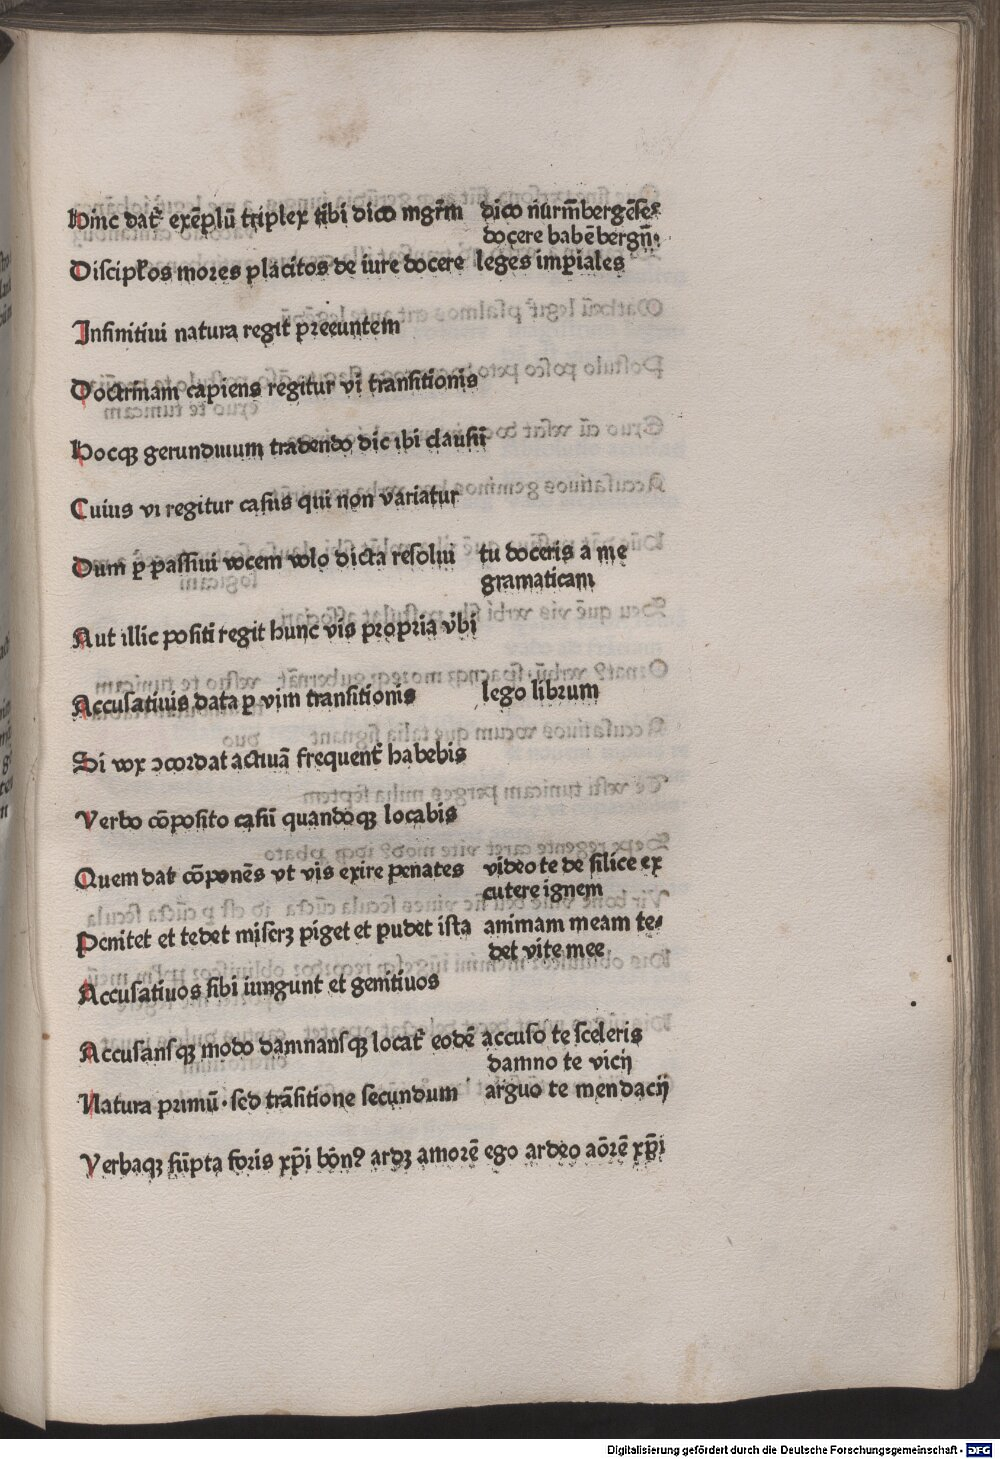 Hinc datᷣ exēplū triplex tibi dico mgr̄m dico nurm̄bergēses
docere babēbergn̄.
Discipl'os mores placitos de iure docere leges imp̄iales
Infinitiui natura regit preeuntem
Doctrinam capiens regitur vi transitionis
Hocqꝫ gerundiuum tradendo dic ibi clausū
Cuius vi regitur casus qui non variatur
Dum ꝑ passiui vocem volo dicta resolui tu doceris a me
gramaticam
Aut illic positi regit hunc vis propria v̄bi
Accusatiuis data ꝑ vim transitionis lego librum
Si vox ↄcordat actiuā frequent̄ habebis
Verbo cōposito casū quandoqꝫ locabis
Quem dat cōponēs vt vis exire penates video te de silice ex
cutere ignem
Penitet et tedet miserꝫ piget et pudet ista animam meam te⸗
det vite mee
Accusatiuos sibi iungunt et genitiuos
Accusansqꝫ modo damnansqꝫ locatᷣ eodē accuso te sceleris
damno te vicij
Natura primū · sed trāsitione secundum arguo te mendacij
Verbaqꝫ sūpta foris xp̄i bōnꝰ ardꝫ amorē ego ardeo aōrē xp̄i
Digitalisierung gefördert durch die Deutsche Forschungsgemeinschaft - DFG